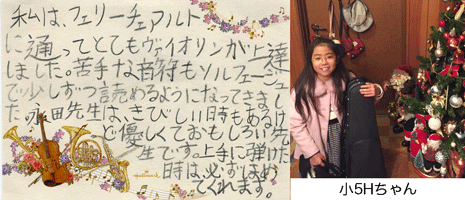 私は、フェリーチェアルト
に通ってとてもヴァイオリンが上達
しました。苦手な音符もソルフェージュ
で少しずつ読めるようになってきまし
た。永田先生は、きびしい時もあるけ
ど優しくておもしろい先
生です。上手に弾けた
時は、必ずほめ
てくれます。
Hallmark
小5Hちゃん